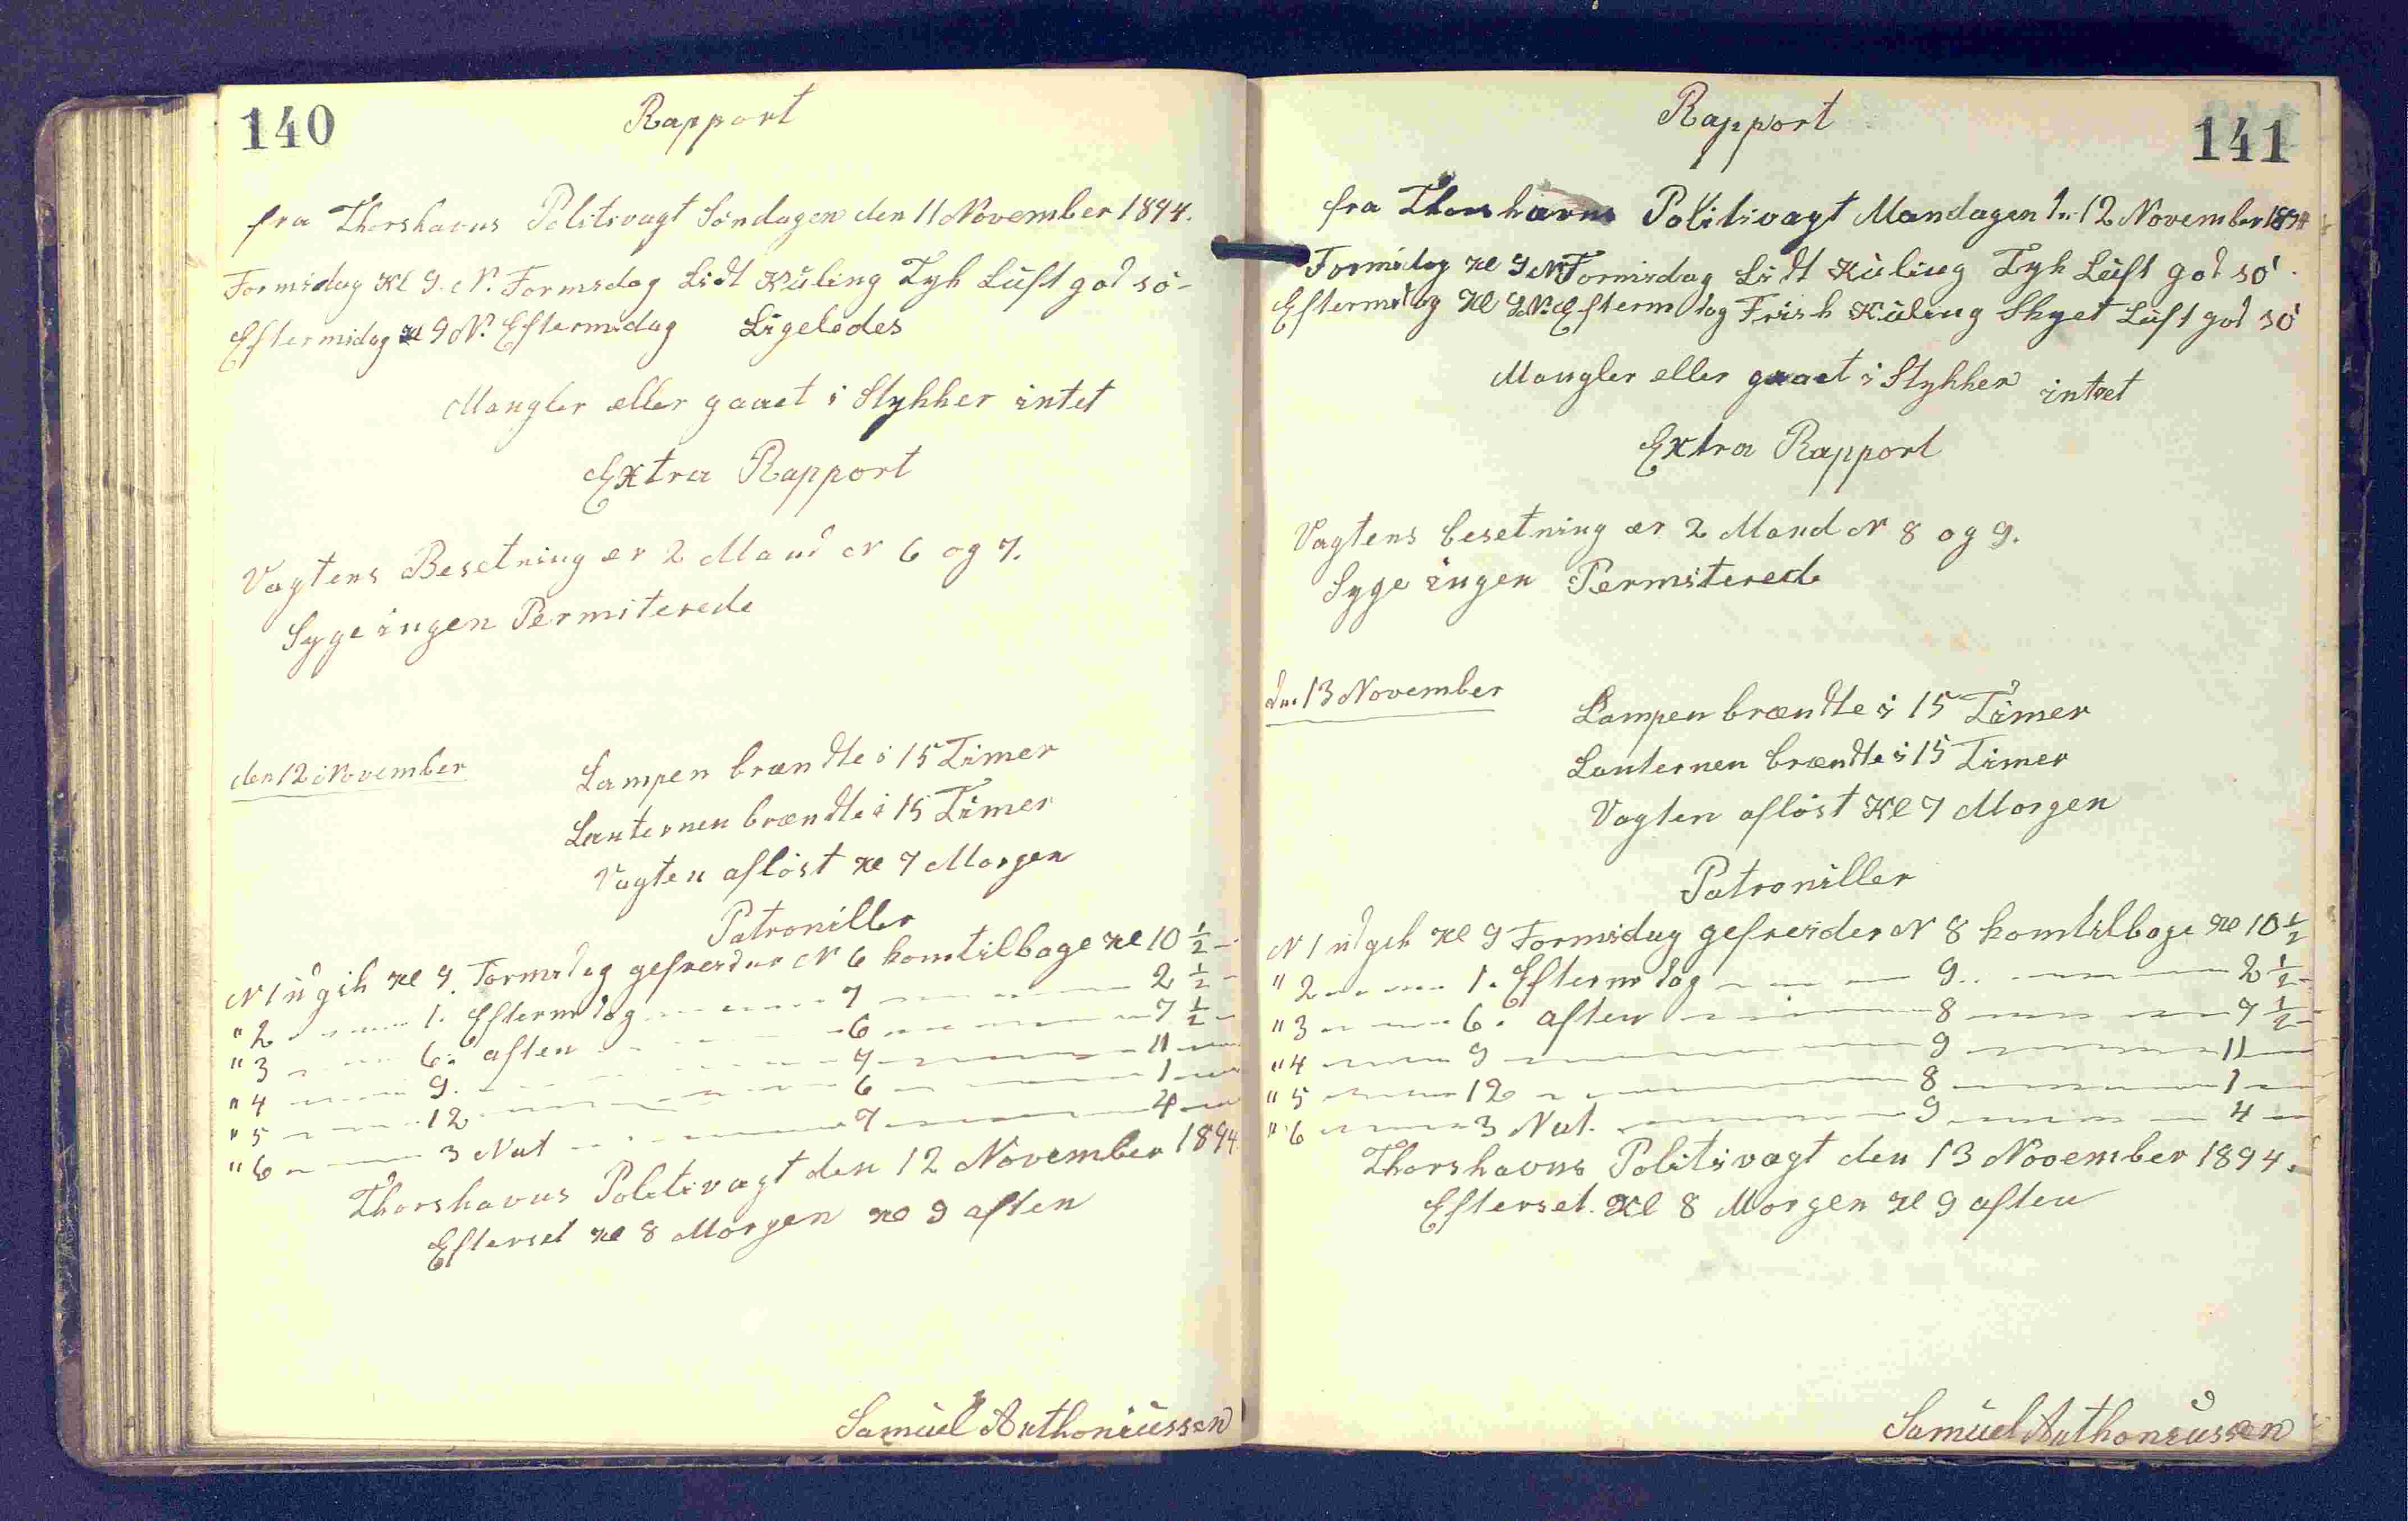 140
Rapport
fra Thorshavns Politivagt Søndagen den 11 November 1894.
Formidag Kl 9. N. Formidag Lidt Kuling Tyk Luft god sø -
Eftermidag Kl 9 N. Eftermidag Ligeledes
Mangler eller gaaet i Stykker intet
Extra Rapport
Vagtens Besetning er 2 Mand N 6 og 7.
Syge ingen Permiterede
den 12 November
Lampen brændte i 15 Timer
Lanternen brændte i 15 Timer
Vagten afløst Kl 7 Morgen
Patroniller
N 1 udgik Kl 9. Formidag gefreider N 6 kom tilbage Kl 10 1/2 -
" 2 — — 1. Eftermidag — — 7 — — 2 1/2 -
" 3 — — 6. aften — — 6 — — 7 1/2 -
" 4 — — 9. — — 7 — — 11 —
" 5 — — 12 — — 6 — — 1 —
" 6 — — 3 Nat — — 7 — — 4 —
Thorshavns Politivagt den 12 November 1894
Efterset Kl 8 Morgen Kl 9 aften
Samuel Anthoniussen
141
Rapport
fra Thorshavns Politivagt Mandagen den 12 November 1894
Formidag Kl 9 N Formidag Lidt Kuling Tyk Luft god sø -
Eftermidag Kl 9 N. Eftermidag Frisk Kuling Skyet Luft god sø
Mangler eller gaaet i Stykker intet
Extra Rapport
Vagtens besetning er 2 Mand N 8 og 9.
Syge ingen Permiterede
den 13 November
Lampen brændte i 15 Timer
Lanternen brændte i 15 Timer
Vagten afløst Kl 7 Morgen
Patroniller
N 1 udgik Kl 9 Formidag gefreider N 8 kom tilbage Kl 10 1/2
" 2 — — 1. Eftermidag — — 9.. — — 2 1/2 -
" 3 — — 6. aften — — 8 — — 7 1/2 -
" 4 — — 9 — — 9 — — 11 —
" 5 — — 12 — — 8 — — 1 —
" 6 — — 3 Nat. — — 9 — — 4 —
Thorshavns Politivagt den 13 November 1894.
Efterset. Kl 8 Morgen Kl 9 aften
Samuel Anthoniussen